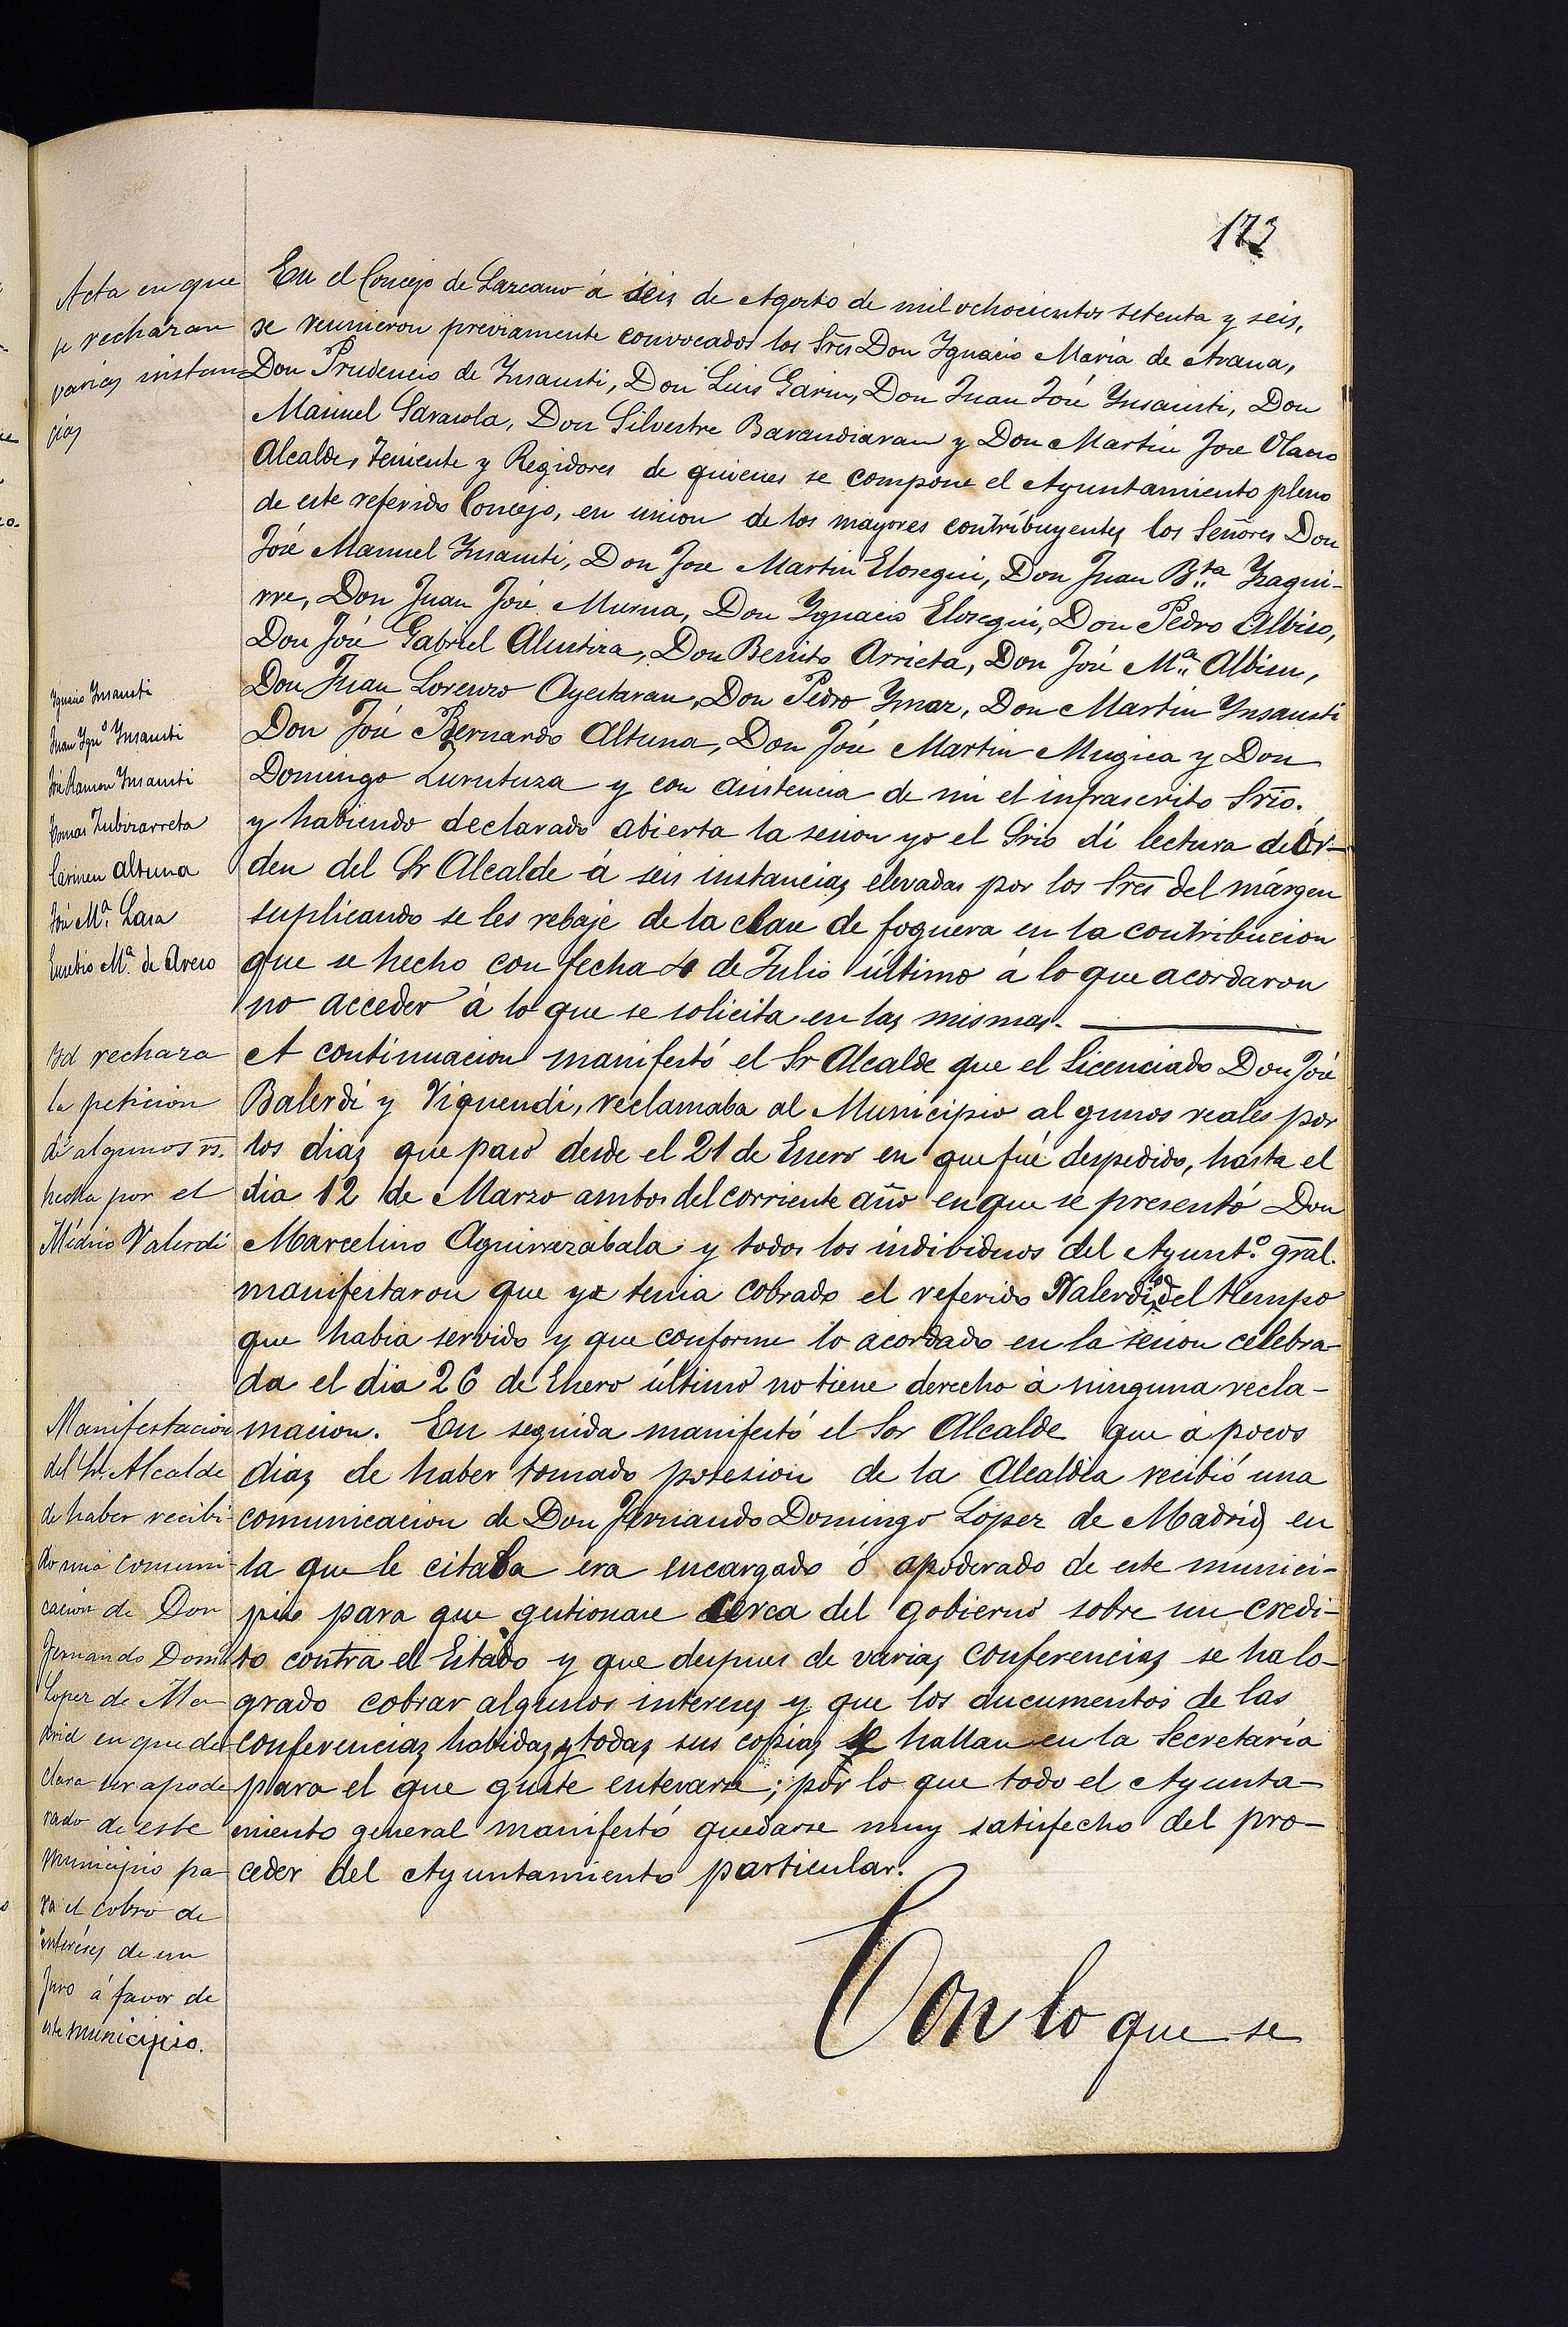 173
Acta en que
se rechazan
varias instan
cias
En el Concejo de Lazcano á seis de Agosto de mil ochocientos setenta y seis,
se reunieron previamente convocados los Srs Don Ygnacio Maria de Arana,
Don Prudencio de Insausti, Don Luis Garin, Don Juan José Ynsausti, Don
Manuel Sarasola, Don Silvestre Barandiaran y Don Martin Jose Olano
Alcalde, Teniente y Regidores de quienes se compone el Ayuntamiento pleno
de este referido Concejo, en union de los mayores contribuyentes los Señores Don
José Manuel Insausti, Don Jose Martin Elosegui, Don Juan B.ta Yzagui-
rre, Don Juan José Murua, Don Ygnacio Elosegui, Don Pedro Albiso,
Don José Gabriel Alustiza, Don Benito Arrieta, Don José M.a Albisu,
Don Juan Lorenzo Ayestaran, Don Pedro Ymaz, Don Martin Ynsausti
Don José Bernardo Altuna, Don José Martin Mugica y Don
Domingo Zurutuza y con asistencia de mi el infrascrito Srio.
y habiendo declarado abierta la sesion yo el Srio dí lectura de ór-
den del Sr Alcalde á seis instancias elevadas por los Sres del márgen
suplicando se les rebaje de la clase de foguera en la contribucion
que se hecho con fecha 4 de Julio último á lo que acordaron
no acceder á lo que se solicita en las mismas.
Ignacio Insausti
Juan Ygn.o Insausti
José Ramon Insausti
Tomas Zubizarreta
Carmen Altuna
José M.a Lasa
Eusebio M.a de Areso
Id rechaza
la peticion
de algunos rs.
hecha por el
Médico Valerdi
A continuacion manifestó el Sr Alcalde que el Licenciado Don José
Balerdi y Viquendi, reclamaba al Municipio algunos reales por
los dias que pasó desde el 21 de Enero en que fué despedido, hasta el
dia 12 de Marzo ambos del corriente año en que se presentó Don
Marcelino Aguirrezabala y todos los individuos del Ayunt.o gral.
manifestaron que ya tenia cobrado el referido Valerdi del tiempo
que habia servido y que conforme lo acordado en la sesion celebra-
da el dia 26 de Enero último no tiene derecho á ninguna recla-
macion. En seguida manifestó el Sor Alcalde que á pocos
dias de haber tomado posesion de la Alcaldia recibió una
comunicacion de Don Fernando Domingo Lopez de Madrid, en
la que le citaba era encargado ó apoderado de este munici-
pio para que gestionase cerca del gobierno sobre un credi-
to contra el Estado y que despues de varias conferencias se ha lo-
grado cobrar algunos intereses y que los ducumentos de las
conferencias habidas y todas sus copias se hallan en la Secretaría
para el que guste enterarse; por lo que todo el Ayunta-
miento general manifestó quedarse muy satisfecho del pro-
ceder del Ayuntamiento particular.
Manifestacion
del Sr. Alcalde
de haber recibi
do una comuni-
cacion de Don
Fernando Domi
Lopez de Ma-
drid en que de-
clara ser apode
rado de este
municipio pa-
ra el cobro de
interéses de un
Juro á favor de
este municipio.
Con lo que se